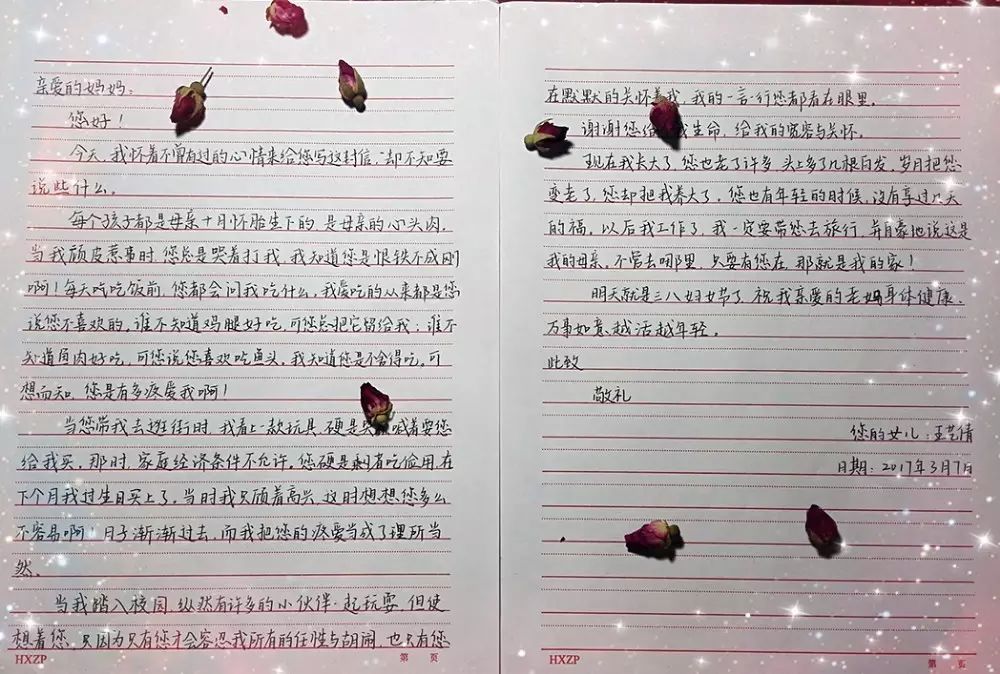 亲爱的妈妈：
您好！
今天，我怀着不曾有过的心情来给您写这封信，却不知要
说些什么。
每个孩子都是母亲十月怀胎生下的，是母亲的心头肉，
当我顽皮惹事时，您总是哭着打我，我知道您是恨铁不成刚
啊！每天吃吃饭前，您都会问我吃什么，我爱吃的从来都是您
说您不喜欢的，谁不知道鸡腿好吃，可您总把它留给我；谁不
知道鱼肉好吃，可您说您喜欢吃鱼头，我知道您是不舍得吃。可
想而知，您是有多疼爱我啊！
当您带我去逛街时，我看上一款玩具，硬是哭喊着要您
给我买，那时，家庭经济条件不允许，您硬是剩着吃俭用，在
下个月我过生日买上了，当时我只顾着高兴，这时想想您多么
不容易啊！月子渐渐过去，而我把您的疼爱当成了理所当
然。
当我踏入校园，纵然有许多的小伙伴一起玩耍，但使
想着您，只因为只有您才会容忍我所有的任性与胡闹，也只有您
HXZP 第 页
在默默的关怀着我，我的一言一行您都看在眼里。
谢谢您给我生命，给我的宽容与关怀。
现在我长大了，您也老了许多，头上多了几根白发，岁月把您
变老了，您却把我养大了，您也有年轻的时候，没有享过几天
的福，以后我工作了，我一定要带您去旅行，并自豪地说这是
我的母亲，不管去哪里，只要有您在，那就是我的家！
明天就是三八妇女节了，祝我亲爱的老妈身体健康，
万事如意，越活越年轻。
此致
敬礼
您的女儿：王艺倩
日期：2017年3月7日
HXZP 第 页